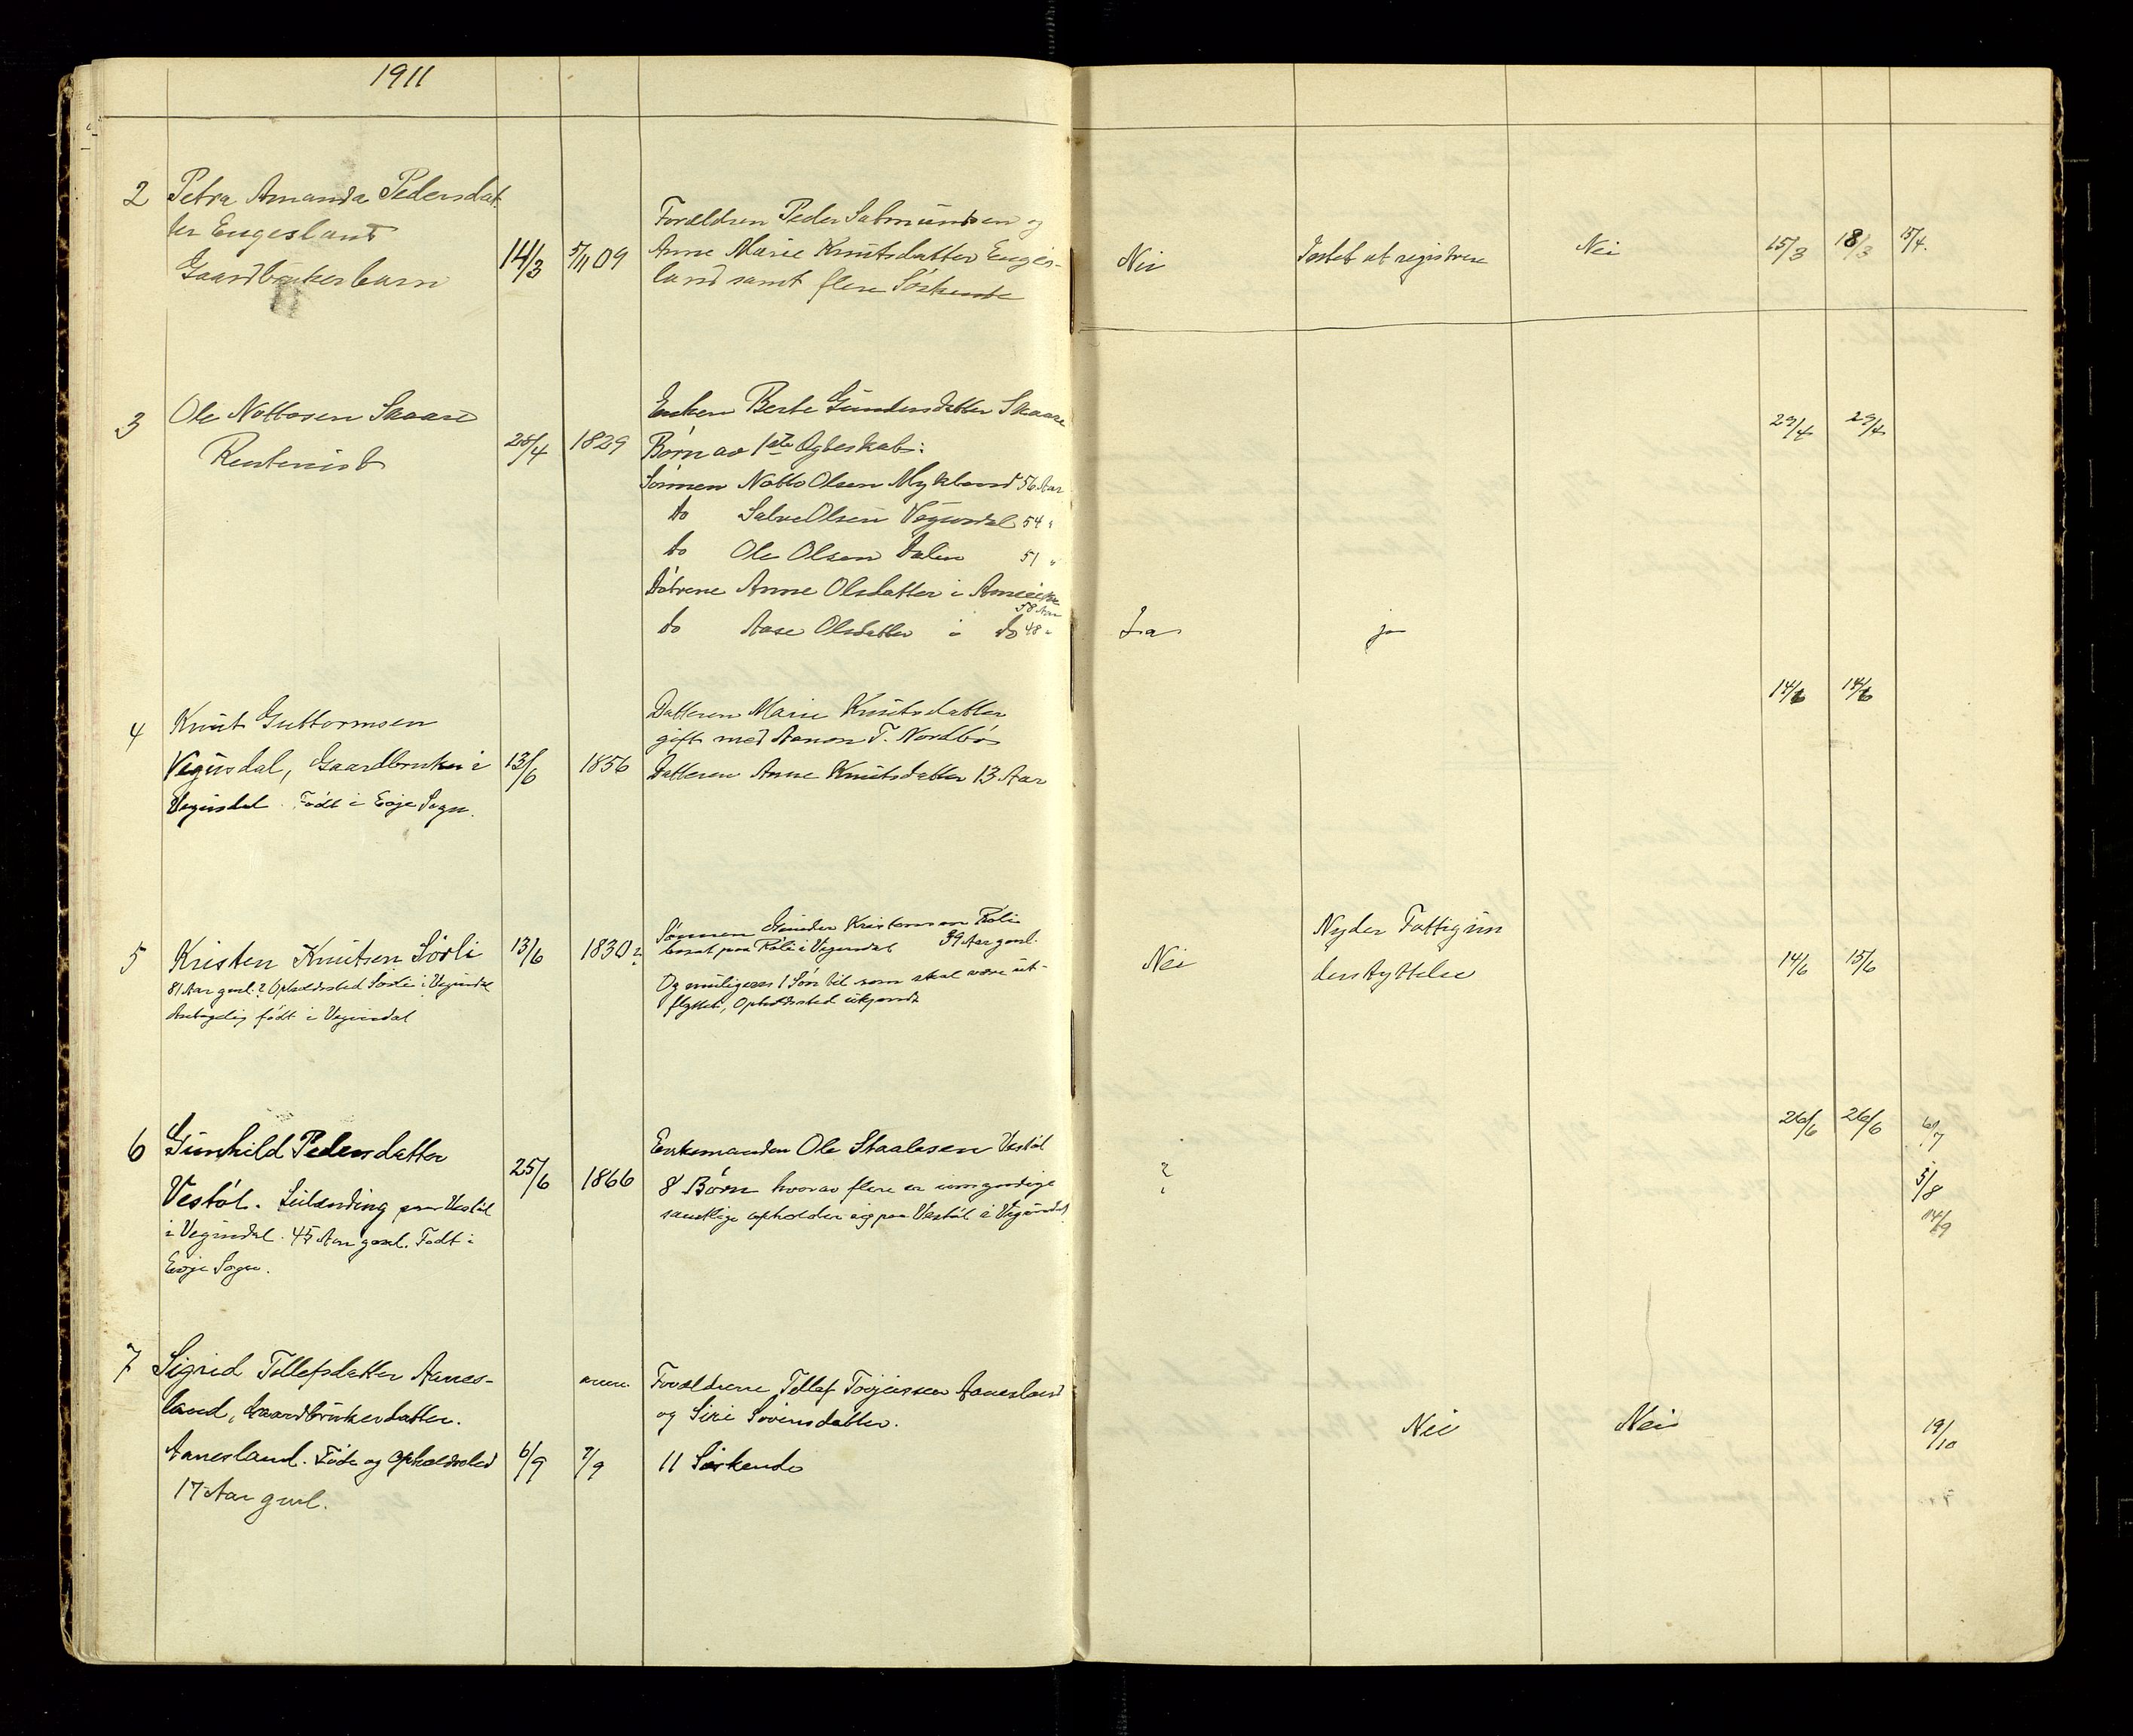 1911
2 Petra Amanda Pedersdat-
ter Engesland
Gaardbrukerbarn
14/3 5/11 09
Forældren Peder Salmundsen og
Anne Marie Knutsdatter Enges-
land samt flere Söskende
Nei
Intet at registrere
Nei
15/3 18/3 15/4.
3 Ole Nottosen Skaare
Rentenist
28/4 1829
Enken Berte Gundersdatter Skaare
Börn av 1ste Egteskab:
Sönnen Notto Olsen Mykland 56 Aar
do Salve Olsen Vegusdal 54 "
do Ole Olsen Dalen 51 "
Dötrene Anne Olsdatter i Amerika
58 Aar
do Aase Olsdatter i do 48 "
Ja
ja
29/4 29/4
4 Knut Guttormsen
Vegusdal, Gaardbruker i
Vegusdal. Födt i Evje Sogn.
13/6 1856
Datteren Marie Knutsdatter
gift med Aanon T. Nordbö
Datteren Anne Knutsdatter 13 Aar
14/6 14/6
5 Kristen Knutsen Sörli
81 Aar gml.? Opholdssted Sörli i Vegusdal
Antagelig födt i Vegusdal
13/6 1830?
Sönnen Gunder Kristensen Röli
bosat paa Röli i Vegusdal 39 Aar gml.
Og muligens 1 Sön til som skal være ut-
flyttet, Opholdssted ukjendt
Nei
Nyder Fattigun
derstyttelse
14/6 15/6
6 Gunhild Pedersdatter
Vestöl. Leilending paa Vestöl
i Vegusdal. 45 Aar gml. Födt i
Evje Sogn.
25/6 1866
Enkemanden Ole Staalesen Vestöl
8 Börn hvorav flere er umyndige
samtlige opholder sig paa Vestöl i Vegusdal
?
26/6 26/6 6/7
5/8
14/9
7 Sigrid Tellefsdatter Aanes-
land, Gaardbrukerdatter.
Aanesland. Föde og Opholdssted
17 Aar gml.
6/9 7/9
Forældrene Tellef Torjussen Aanesland
og Siri Sveinsdatter.
11 Söskende
Nei
Nei
19/10